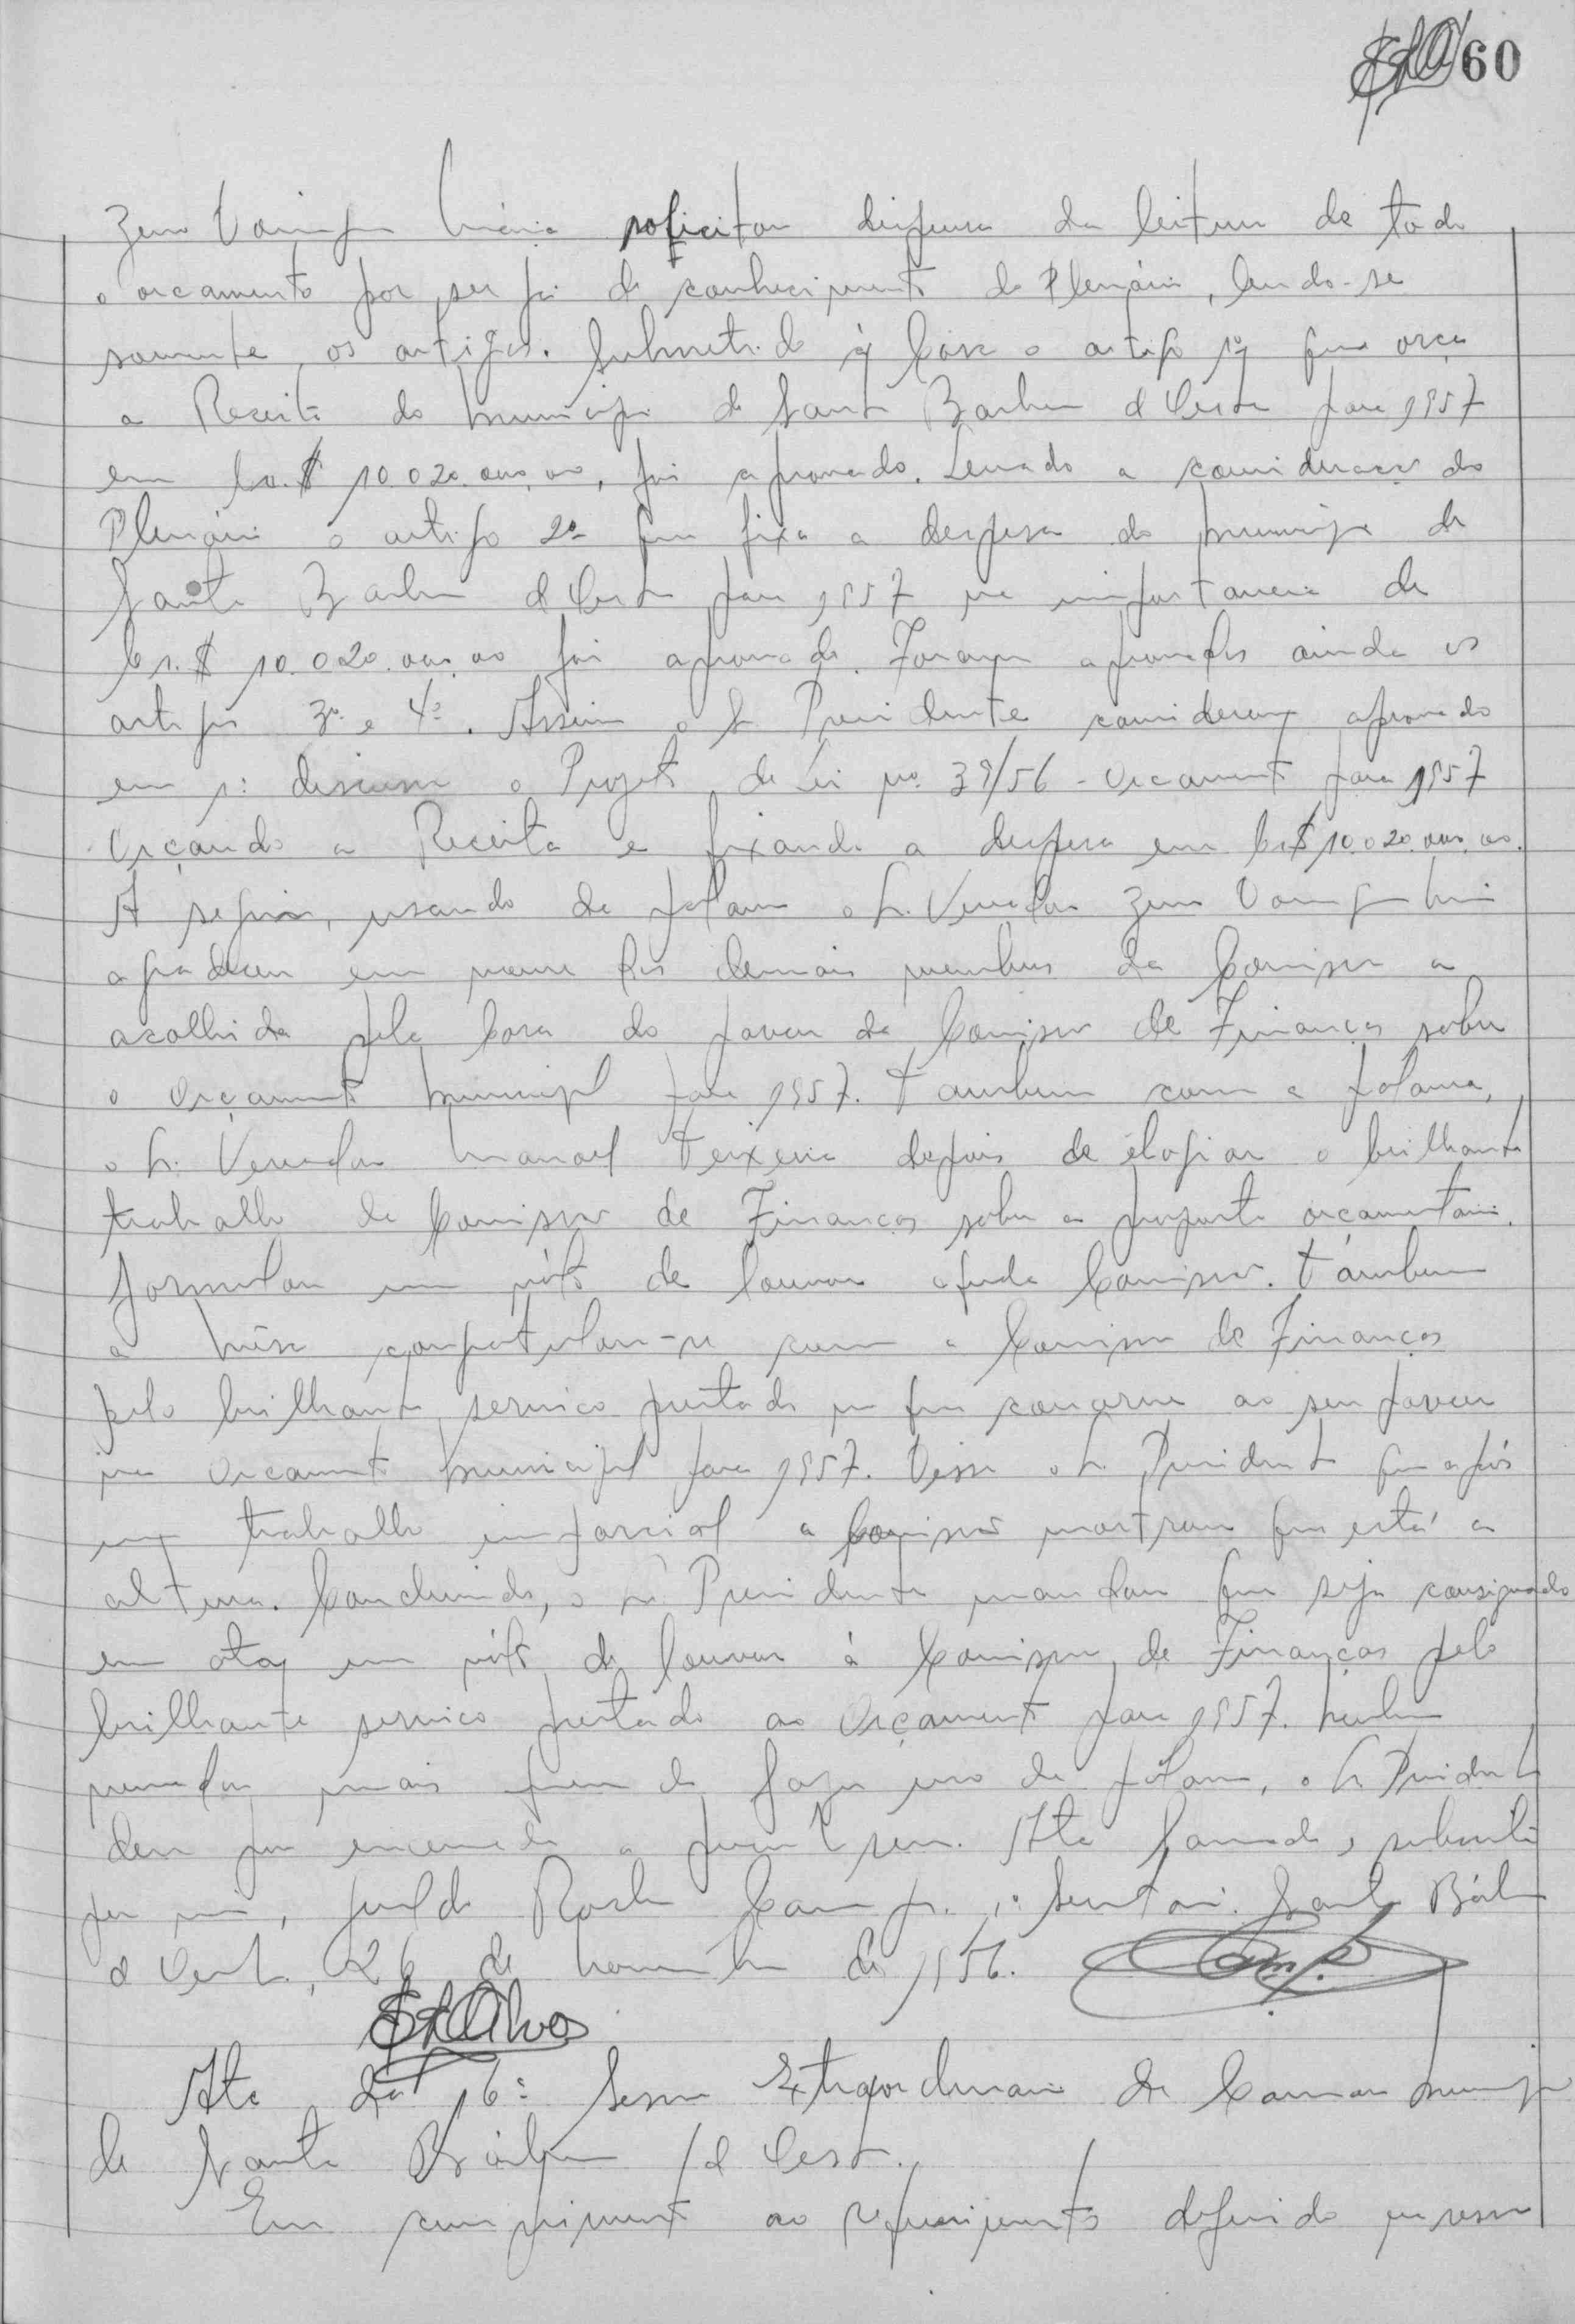 60
Zeno Maia solicitou dispensa da leitura de todo
o orcamento por ser já de conhecimento do Plenário, lendo-se
somente os artigos. Submetido à Casa o artigo 1º que orça
a Receita do Municipio de Santa Barbara d'Oeste para 1957
em Cr.$ 10.020.000,00, foi aprovado. Levado a consideracao do
Plenário o artigo 2º que fixa a despesa do Municipio de
Santa Barbara d'Oeste para 1957 na importancia de
Cr.$ 10.020.000,00 foi aprovado. Foram aprovados ainda os
artigos 3º e 4º. Assim o Sr Presidente considerou aprovado
em 1ª discussão o Projeto de Lei nº 39/56 - Orcamento para 1957
Orçando a Receita e fixando a despesa em Cr$ 10.020.000,00.
A seguir, usando da palavra o Sr. Vereador Zeno Maia
agradeceu em nome dos demais membros da Comissão a
acolhida pela Casa do parecer da Comissão de Finanças sobre
o Orçamento Municipal para 1957. Tambem com a palavra,
o Sr. Vereador Manoel Teixeira depois de elogiar o brilhante
trabalho da Comissão de Finanças sobre a proposta orçamentaria,
formulou um vóto de louvor aquela Comissão. Também
a Mêsa congratulou-se com a Comissão de Finanças
pelo brilhante servico prestado no que concerne ao seu parecer
no Orcamento Municipal para 1957. Disse o Sr. Presidente que após
um trabalho imparcial a Comissão mostrou que está a
altura. Concluindo, o Sr. Presidente mandou que seja consignado
em ata um vóto de louvor à Comissão de Finanças pelo
brilhante servico prestado ao Orçamento para 1957. Nenhum
vereador mais querendo fazer uso da palavra, o Sr. Presidente
deu por encerrada a presente sessão. Ata lavrada e subscrita
por mim, Rocha Campos Jr. 1º Secretario. Santa Bárbara
d'Oeste, 26 de Novembro de 1956.
Ata da 16ª Sessão Extraordinaria da Camara Municipal
de Santa Bárbara d'Oeste.
Em cumprimento ao requerimento deferido na sessão